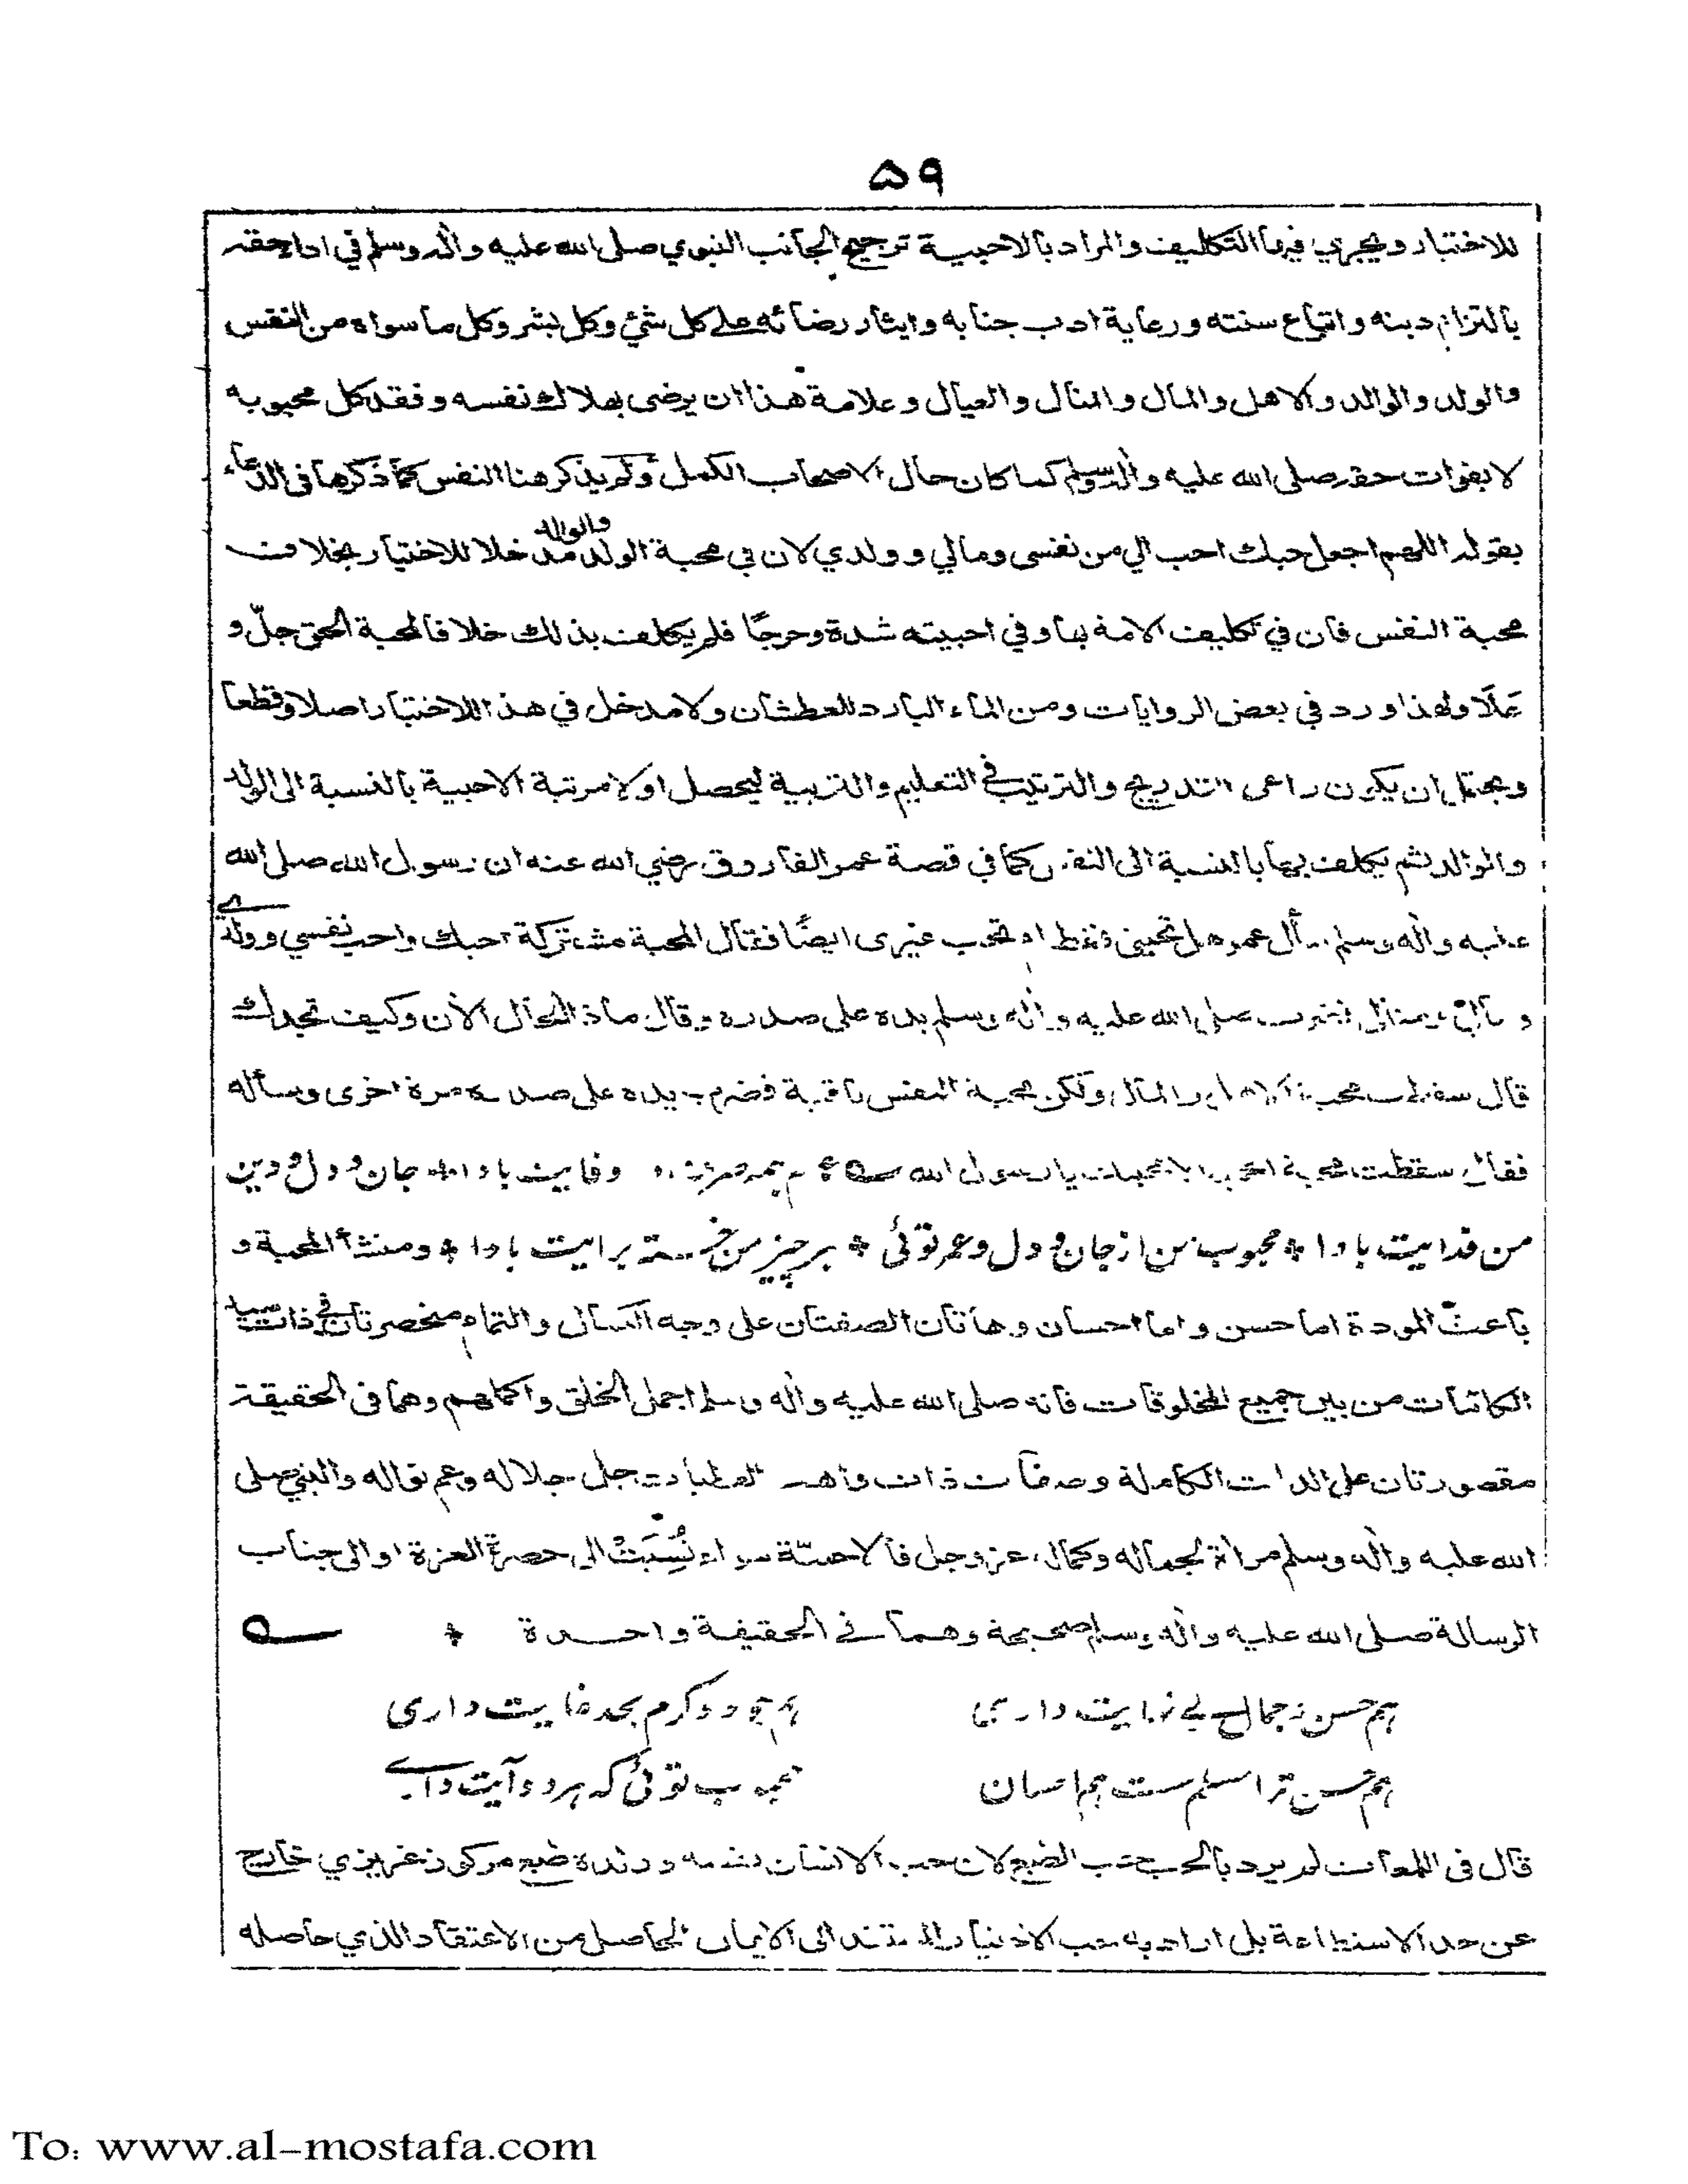 ۵۹
للاختيار ويجري فيها التكليف والمراد بالاحبية ترجيح الجانب النبوي صلى الله عليه وأله وسلم في اداء حقه
بالتزام دينه واتباع سنته ورعاية ادب جنابه وايثار رضائه على كل شئ وكل بشر وكل ما سواه من النفس
والولد والوالد والاهل والمال والمنال والعيال وعلامة هذا ان يرضى بهلاك نفسه وفقد كل محبوبه
لا بفوات حقه صلى الله عليه وأله وسلم كما كان حال الاصحاب الكمل ولم يذكر هنا النفس كما ذكرها في الدعاء
بقوله اللهم اجعل حبك احب الي من نفسى ومالي وولدي لان في محبة الولد والوالد مدخلا للاختيار بخلاف
محبة النفس فان في تكليف الامة بها وفي احبيته شدة وحرجًا فلم يكلف بذلك خلافا لمحبة الحق جلّ و
عَلَا ولهذا ورد في بعض الروايات ومن الماء البارد للعطشان ولا مدخل في هذا للاختيار اصلا وقطعا
ويحتمل ان يكون راعى التدريج والترتيب في التعليم والتربية ليحصل اولا مرتبة الاحبية بالنسبة الى الولد
والوالد ثم يكلف بها بالنسبة الى النفس كما في قصة عمر الفاروق رضي الله عنه ان رسول الله صلى الله
عليه وأله وسلم سأل عمر هل تحبني فقط ام تحب غيرى ايضًا فقال المحبة مشتركة احبك واحب نفسي وولدي
و صلى الله عليه وأله وسلم يده على صدره وقال ماذا الحال الأن وكيف تجدك
قال سقطت محبة المال ولكن محبة النفس باقية فضرب يده على صدره مرة اخرى وسأله
فقال سقطت محبة يا رسول الله جان و دل و دين
من فدايت بادا * محبوب من از جان و دل و عمر توئى * هر چيز من خسته برايت بادا * ومنشأ المحبة و
باعث المودة اما حسن واما احسان وهاتان الصفتان على وجه الكمال والتمام منحصرتان في ذات سيد
الكائنات من بين جميع المخلوقات فانه صلى الله عليه وأله وسلم اجمل الخلق واكملهم وهما في الحقيقة
مقصورتان على الذات الكاملة وصفات ذات واهب العطيات جل جلاله وعم نواله والنبي صلى
الله عليه وأله وسلم مرأة لجماله وكماله عز وجل فالاحبيّة سواء نُسِبَتْ الى حضرة العزة او الى جناب
الرسالة صلى الله عليه وأله وسلم صحيحة وهما في الحقيقة واحدة *
هم حسن و جمال بے نهايت داری هم جود و كرم بحد غايت داری
هم حسن ترا مسلم ست هم احسان محبوب توئی كه هر دو آيت داری
قال في اللمعات لم يرد بالحب حب الطبع لان حب الانسان نفسه وولده طبع مركوز غريزي خارج
عن حد الاستطاعة بل اراد به حب الاختيار المستند الى الايمان الحاصل من الاعتقاد الذي حاصله
To: www.al-mostafa.com